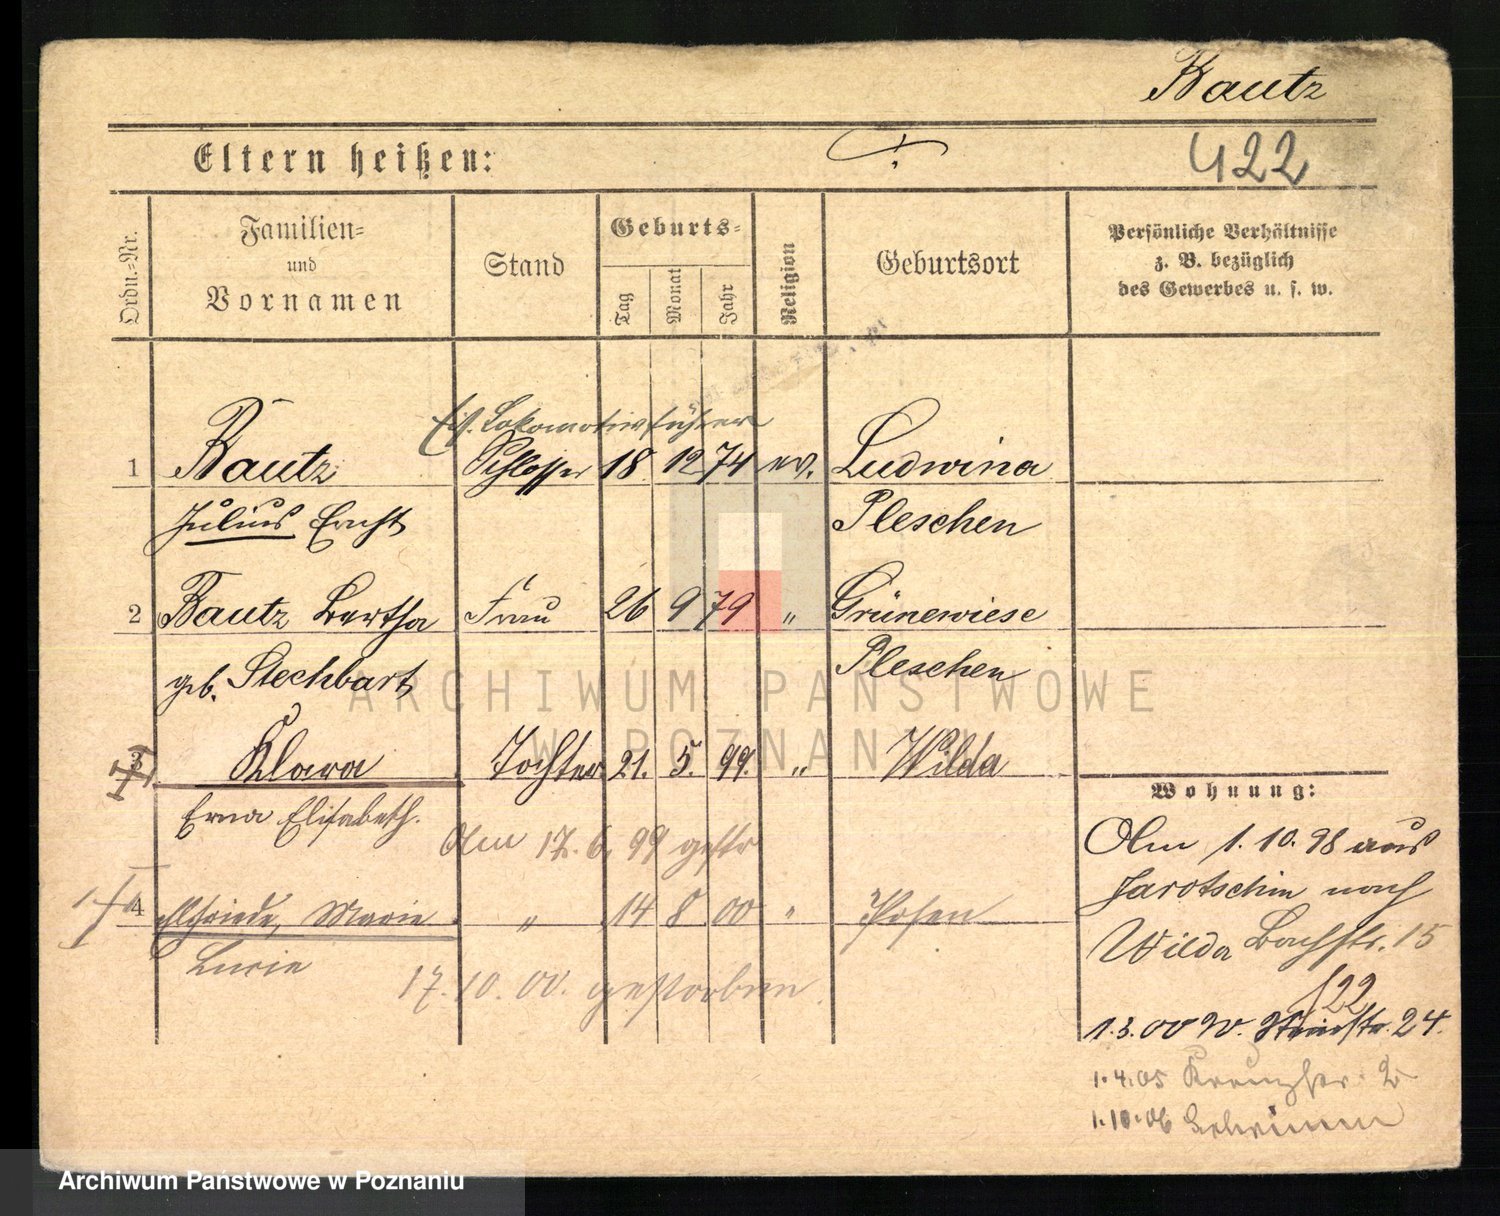 Kautz
Eltern heißen:
422
Ordn.-Nr.
Familien-
und
Vornamen
Stand
Geburts-
Tag
Monat
Jahr
Religion
Geburtsort
Persönliche Verhältnisse
z. B. bezüglich
des Gewerbes u. s. w.
Lokomotivführer
1 Kautz Schlosser 18 12 74 ev. Ludwina
Julius Ernst Pleschen
2 Kautz Bertha Frau 26 9 79 " Grünewiese
geb. Stechbart Pleschen
3 Klara Tochter 21. 5. 99. " Wilda
Erna Elisabeth.
Am 17. 6. 99 gestr
4 Elfriede, Marie " 14 8 00 " Posen
Lucie
17. 10. 00. gestorben.
Wohnung:
Am 1. 10. 98 aus
Jarotschin nach
Wilda Bachstr. 15
122
1. 3. 00 W. 24.
1. 4. 05 2
1. 10. 06
ARCHIWUM PAŃSTWOWE
W POZNANIU
Archiwum Państwowe w Poznaniu